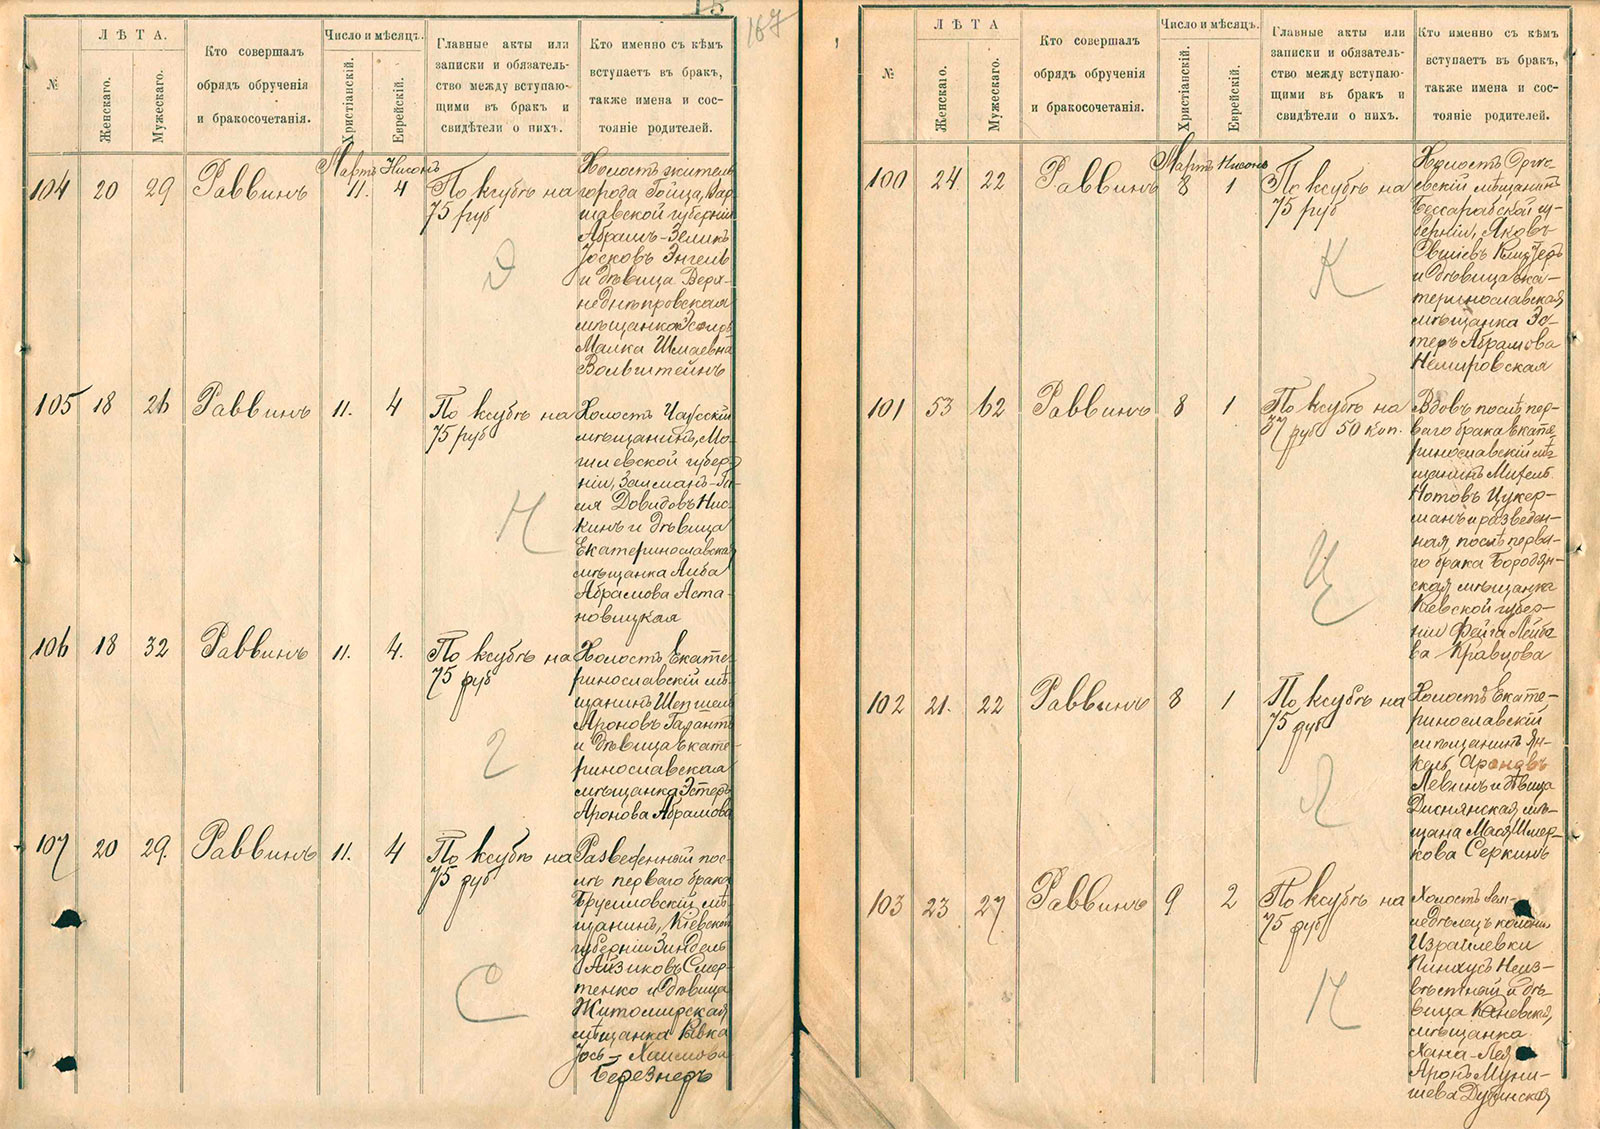 15
167
№
ЛѢТА.
Женскаго.
Мужескаго.
Кто совершалъ
обрядъ обрученія
и бракосочетанія.
Число и мѣсяцъ.
Христіанскій.
Еврейскій.
Главные акты или
записки и обязатель-
ство между вступаю-
щими въ бракъ и
свидѣтели о нихъ.
Кто именно съ кѣмъ
вступаетъ въ бракъ,
также имена и сос-
тояніе родителей.
Мартъ Нисонъ
104 20 29 Раввинъ 11. 4 По ксубѣ на
75 руб
Э
Холостъ житель
города Гойца, Вар-
шавской губерніи
Абрамъ-Зеликъ
Іосковъ Энгель
и дѣвица Верх-
неднѣпровская
мѣщанка Эсфирь
Малка Шмаевна
Вольфштейнъ
105 18 26 Раввинъ 11. 4 По ксубѣ на
75 руб
Н
Холостъ Чаусскій
мѣщанинъ, Мо-
гилевской губер-
ніи, Залманъ-Ги-
ля Довидовъ Нис-
кинъ и дѣвица
Екатеринославская
мѣщанка Либа
Абрамова Аста-
новицкая
106 18 32 Раввинъ 11. 4. По ксубѣ на
75 руб
Г
Холостъ Екате-
ринославскій мѣ-
щанинъ Шепшель
Ароновъ Галантъ
и дѣвица Екате-
ринославская
мѣщанка Эстеръ
Аронова Абрамова
107 20 29. Раввинъ 11. 4 По ксубѣ на
75 руб
С
Разведенный пос-
лѣ перваго брака
Брусиловскій мѣ-
щанинъ, Кіевской
губерніи Зиндель
Айзиковъ Смер-
тенко и дѣвица
Житомирская
мѣщанка Ривка
Іось-Хаимова
Березнеръ
№
ЛѢТА
Женскаго.
Мужескаго.
Кто совершалъ
обрядъ обрученія
и бракосочетанія.
Число и мѣсяцъ.
Христіанскій.
Еврейскій.
Главные акты или
записки и обязатель-
ство между вступаю-
щими въ бракъ и
свидѣтели о нихъ.
Кто именно съ кѣмъ
вступаетъ въ бракъ,
также имена и сос-
тояніе родителей.
Мартъ Нисонъ
100 24 22 Раввинъ 8 1 По ксубѣ на
75 руб
К
Холостъ Оргѣ-
евскій мѣщанинъ
Бессарабской гу-
берніи, Яковъ
Овшіевъ
и дѣвица Ека-
теринославская
мѣщанка Эс-
теръ Абрамова
Немировская
101 53 62 Раввинъ 8 1 По ксубѣ на
37 руб 50 коп.
Ц
Вдовъ послѣ пер-
ваго брака Екате-
ринославскій мѣ-
щанинъ Михель
Нотовъ Цукер-
манъ и разведен-
ная послѣ перва-
го брака Бородян-
ская мѣщанка
Кіевской губер-
ніи Фейга Лейбо-
ва Кравцова
102 21. 22 Раввинъ 8 1 По ксубѣ на
75 руб
Л
Холостъ Екате-
ринославскій
мѣщанинъ Ян-
кель Ароновъ
Левинъ и дѣвица
Диснянская мѣ-
щанка Мася Шмер-
кова Серкинъ
103 23 27 Раввинъ 9 2 По ксубѣ на
75 руб
Н
Холостъ зем-
ледѣлецъ колоніи
Израилевки
Пинхусъ Неиз-
вѣстный и дѣ-
вица Каневская,
мѣщанка
Хана-Лея
Аронъ Муни-
шева Дубинская